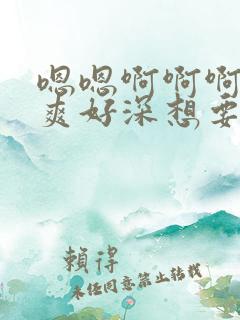 嗯嗯啊啊啊
爽好深想要
賴得
未经同意禁止转载